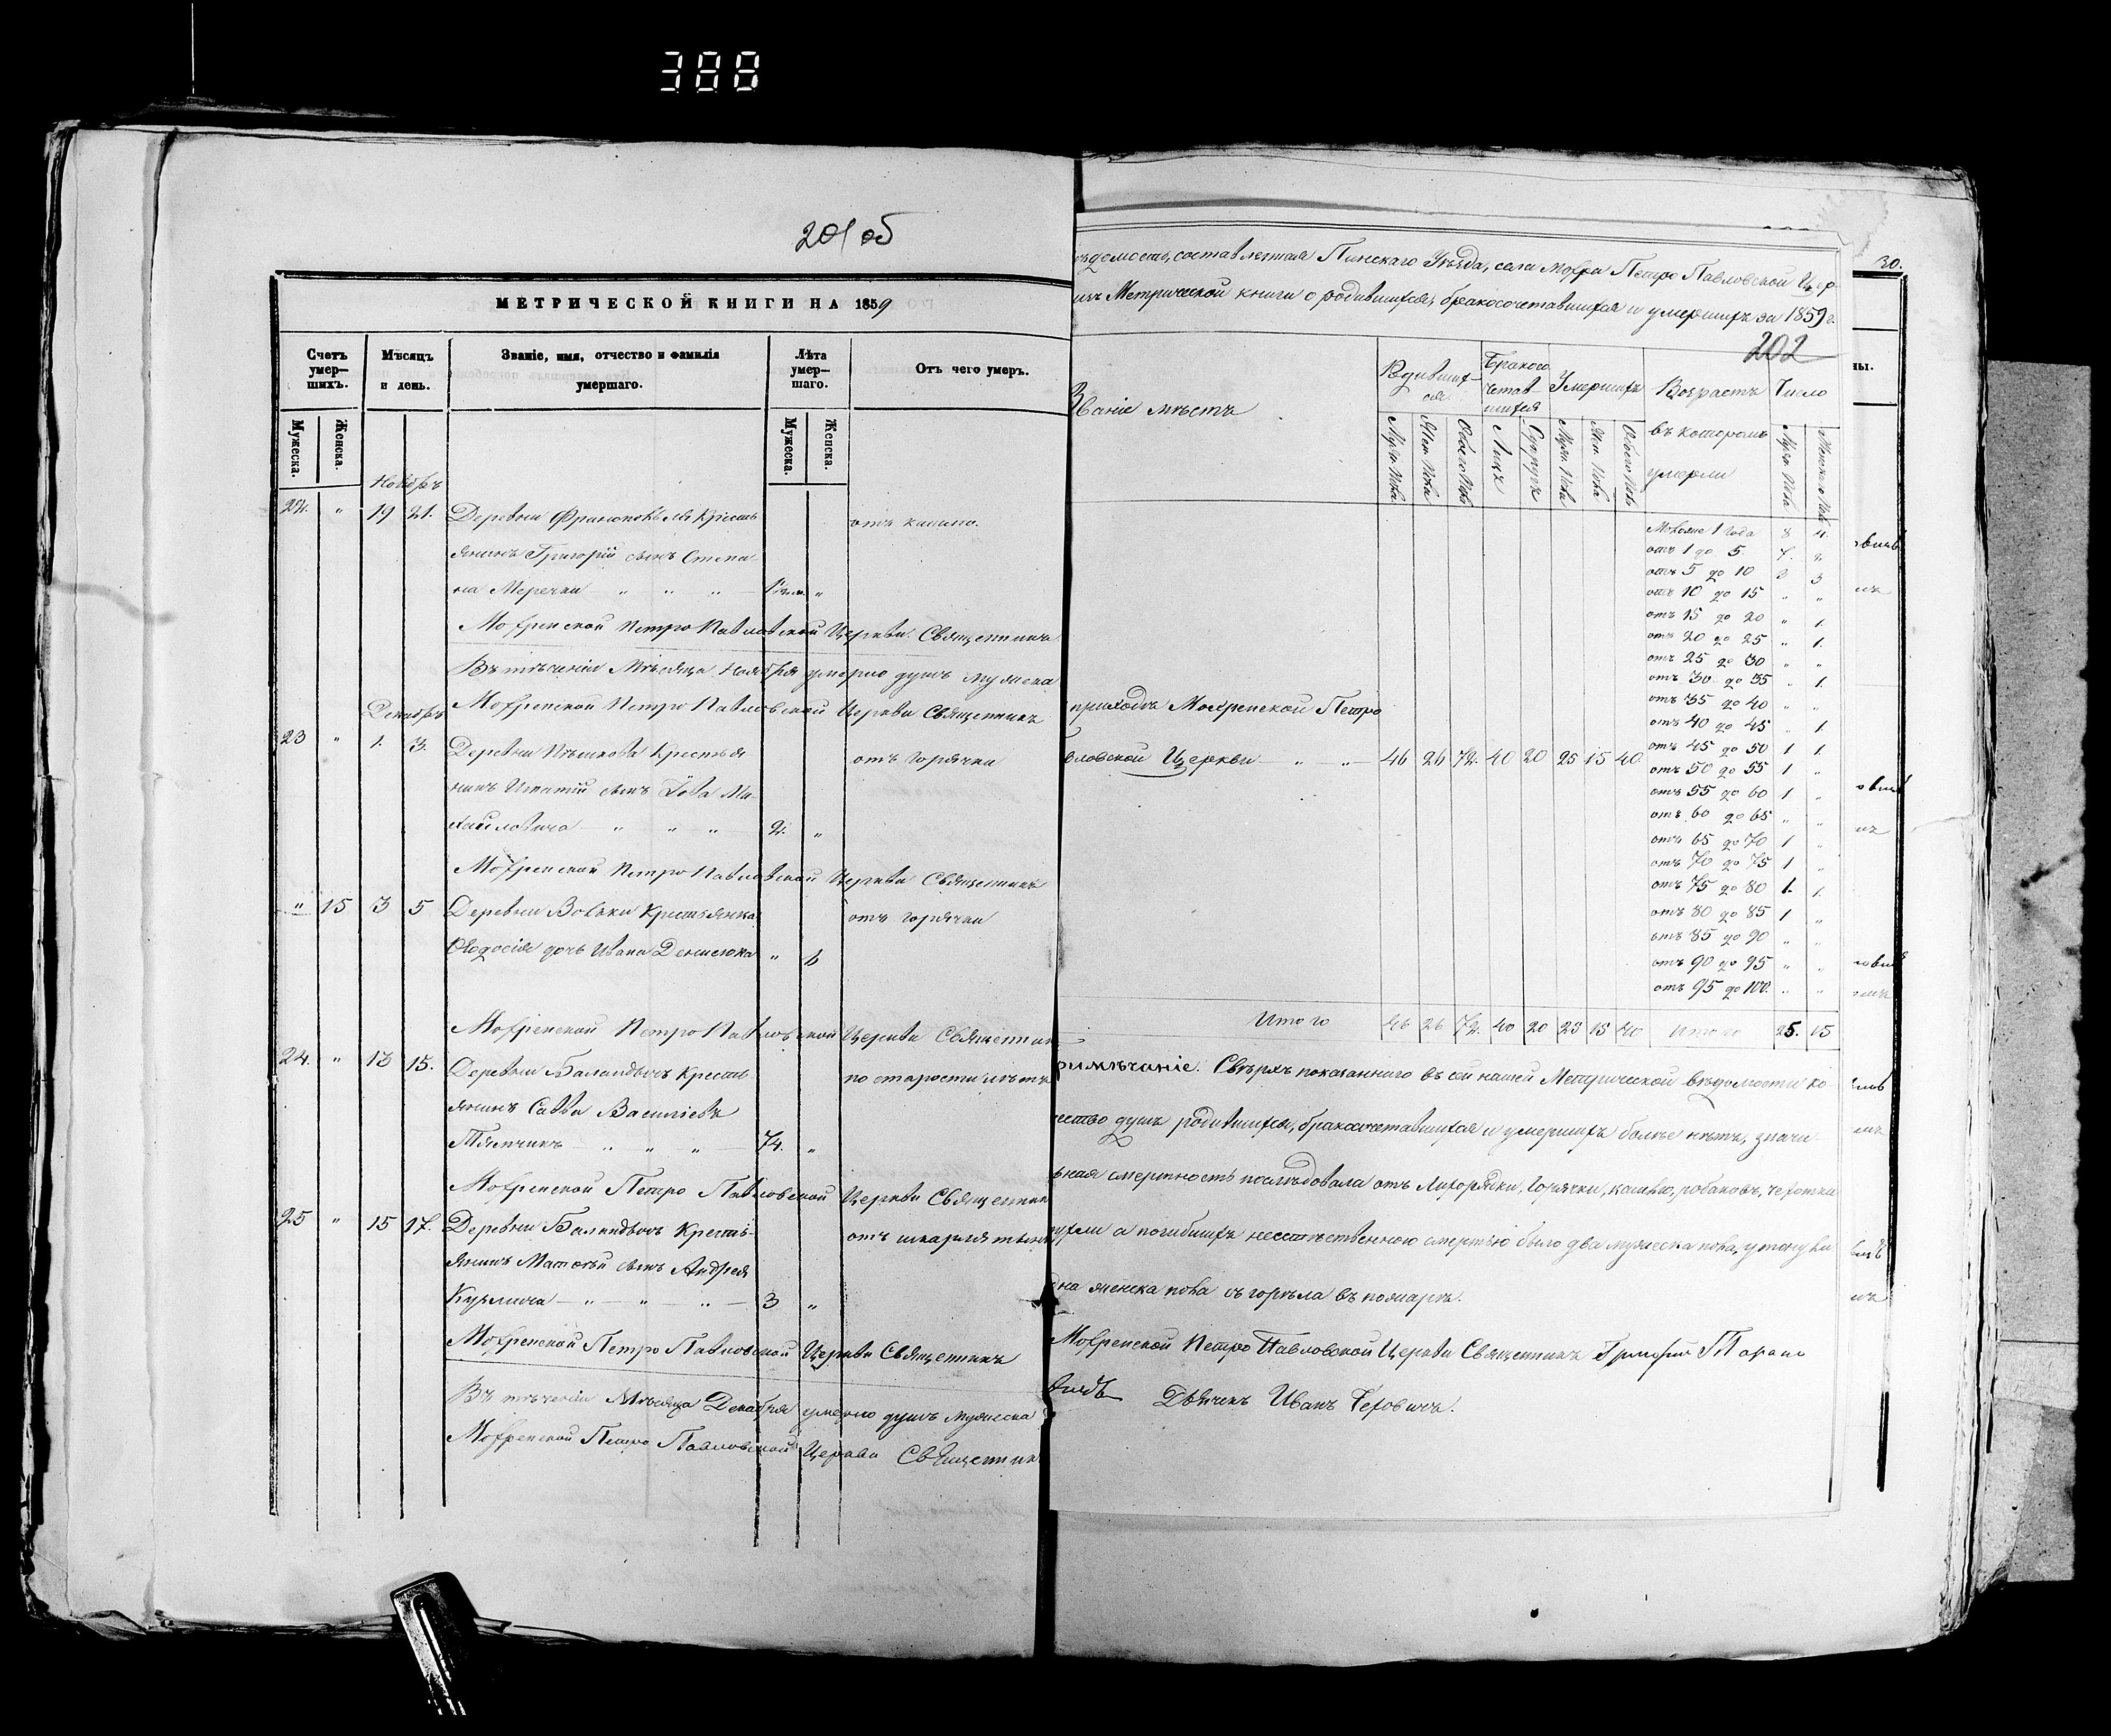 388
201 об
МЕТРИЧЕСКОЙ КНИГИ НА 1859
Счетъ умер—шихъ.
Мѣсяцъ и день.
Званіе, имя, отчество и фамилія умершаго.
Лѣта умер—шаго.
Отъ чего умеръ.
Мужеска.
Женска.
Мужеска.
Женска.
Ноябрь
22. " 19 21. Деревни Кресть отъ кашлю.
янинъ Григорій сынъ Степа
на Меречки " " "
Мохренской Петро Павловской Церкви Священникъ
Въ теченіи Мѣсяца Ноября умерло душъ мужеска
Декабрь
Мохренской Петро Павловской Церкви Священникъ
23 " 1. 3. Деревни Пѣшкова Крестья отъ горячки
нинъ Игнатій сынъ Іова Ми
хайловича " " " 2. "
Мохренской Петро Павловской Церкви Священникъ
" 15 3 5 Деревни Вовки Крестьянка отъ горячки
Ѳедосія дочь Ивана Денисюка "
Мохренской Петро Павловской Церкви Священник
24. " 13 15. Деревни Баландычъ Кресть по старости лѣтъ
янинъ Савва Василіевъ
" " " 74. "
Мохренской Петро Павловской Церкви Священник
25 " 15 17. Деревни Баландычъ Кресть отъ шкарлятыны
янинъ Матѳѣй сынъ Андрея
Курлича " " " 3 "
Мохренской Петро Павловской Церкви Священникъ
Въ теченіи Мѣсяца Декабря умерло душъ мужеска
Мохренской Петро Павловской Церкви Священник
30.
ѣдомость, составленная Пинскаго Уѣзда, села Мохра Петро Павловской Цер
изъ Метрической книги о родившихся, бракосочетавшихся и умершихъ за 1859 г.
202
Званіе мѣстъ
Родившихся
Бракосочетавшихся
Умершихъ
Возрастъ въ которомъ умерли
Число
Муж. пола
Жен. пола
Обоего пола
Лицъ
Супруж
Муж. пола
Жен. пола
Обоего пола
Муж. пола
Женскаго пола
ны.
приходъ Мохренской Петро
вловской Церкви " " 46 26 72. 40 20 25 15 40
Моложе 1 года 8 4.
отъ 1 до 5 7. 2.
отъ 5 до 10 2 3
отъ 10 до 15 " "
отъ 15 до 20 " 1.
отъ 20 до 25 " 1.
отъ 25 до 30 " "
отъ 30 до 35 " 1.
отъ 35 до 40 " "
отъ 40 до 45 " 1
отъ 45 до 50 1 1
отъ 50 до 55 1 "
отъ 55 до 60 1 "
отъ 60 до 65 " "
отъ 65 до 70 1 "
отъ 70 до 75 1 "
отъ 75 до 80 1. 1.
отъ 80 до 85 1 "
отъ 85 до 90 " "
отъ 90 до 95 " "
отъ 95 до 100. " "
Итого 46 26 72. 40 20 25 15 40 Итого 25. 15
римѣчаніе. Сверхъ показаннаго въ сей нашей Метрической вѣдомости ко
ество душъ родившихся, бракосочетавшихся и умершихъ болѣе нѣтъ, значи
ьная смертность послѣдовала отъ Лихорадки, Горячки, кашлю, робаковъ, чехотки
а погибшихъ неестественною смертью было два мужеска пола, утонувши
дна женска пола сгорѣла въ пожарѣ.
Мохренской Петро Павловской Церкви Священникъ Григорій Тарано
вичъ Дьячекъ Иванъ Чеховичъ.